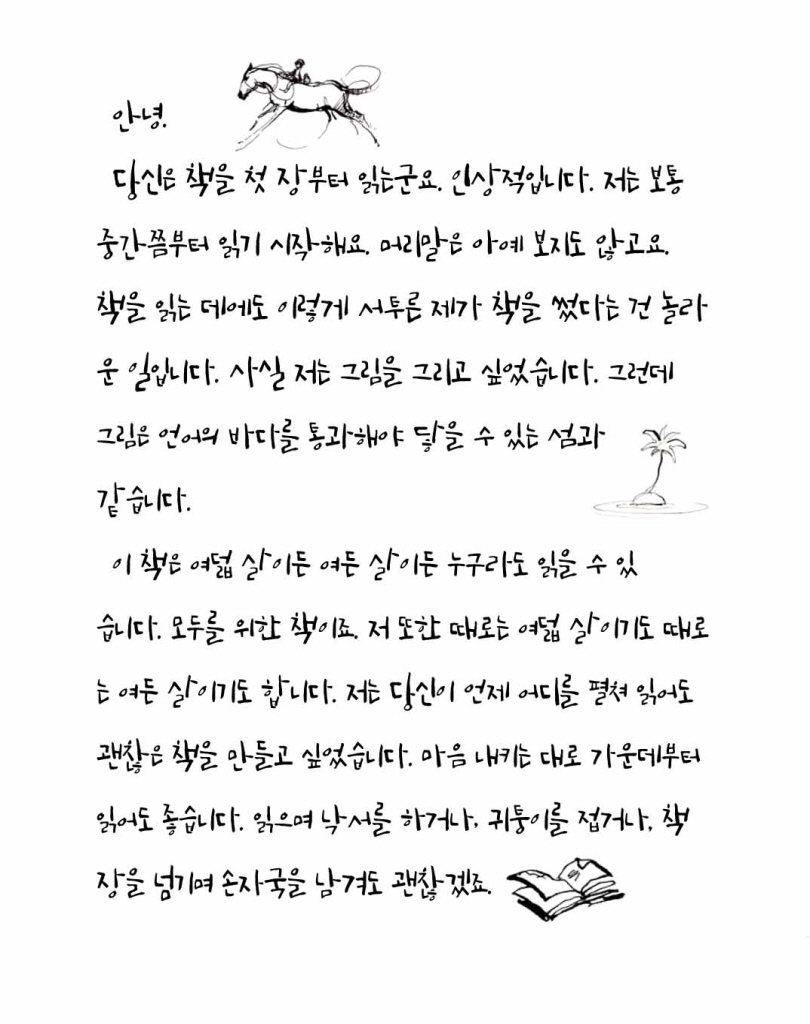 안녕.
당신은 책을 첫 장부터 읽는군요. 인상적입니다. 저는 보통
중간쯤부터 읽기 시작해요. 머리말은 아예 보지도 않고요.
책을 읽는 데에도 이렇게 서투른 제가 책을 썼다는 건 놀라
운 일입니다. 사실 저는 그림을 그리고 싶었습니다. 그런데
그림은 언어의 바다를 통과해야 닿을 수 있는 섬과
같습니다.
이 책은 여덟 살이든 여든 살이든 누구라도 읽을 수 있
습니다. 모두를 위한 책이죠. 저 또한 때로는 여덟 살이기도 때로
는 여든 살이기도 합니다. 저는 당신이 언제 어디를 펼쳐 읽어도
괜찮은 책을 만들고 싶었습니다. 마음 내키는 대로 가운데부터
읽어도 좋습니다. 읽으며 낙서를 하거나, 귀퉁이를 접거나, 책
장을 넘기며 손자국을 남겨도 괜찮겠죠.